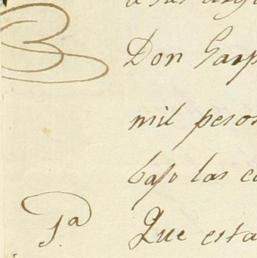 Don Gasp
mil pesos
bajo las c
1.a Que esta